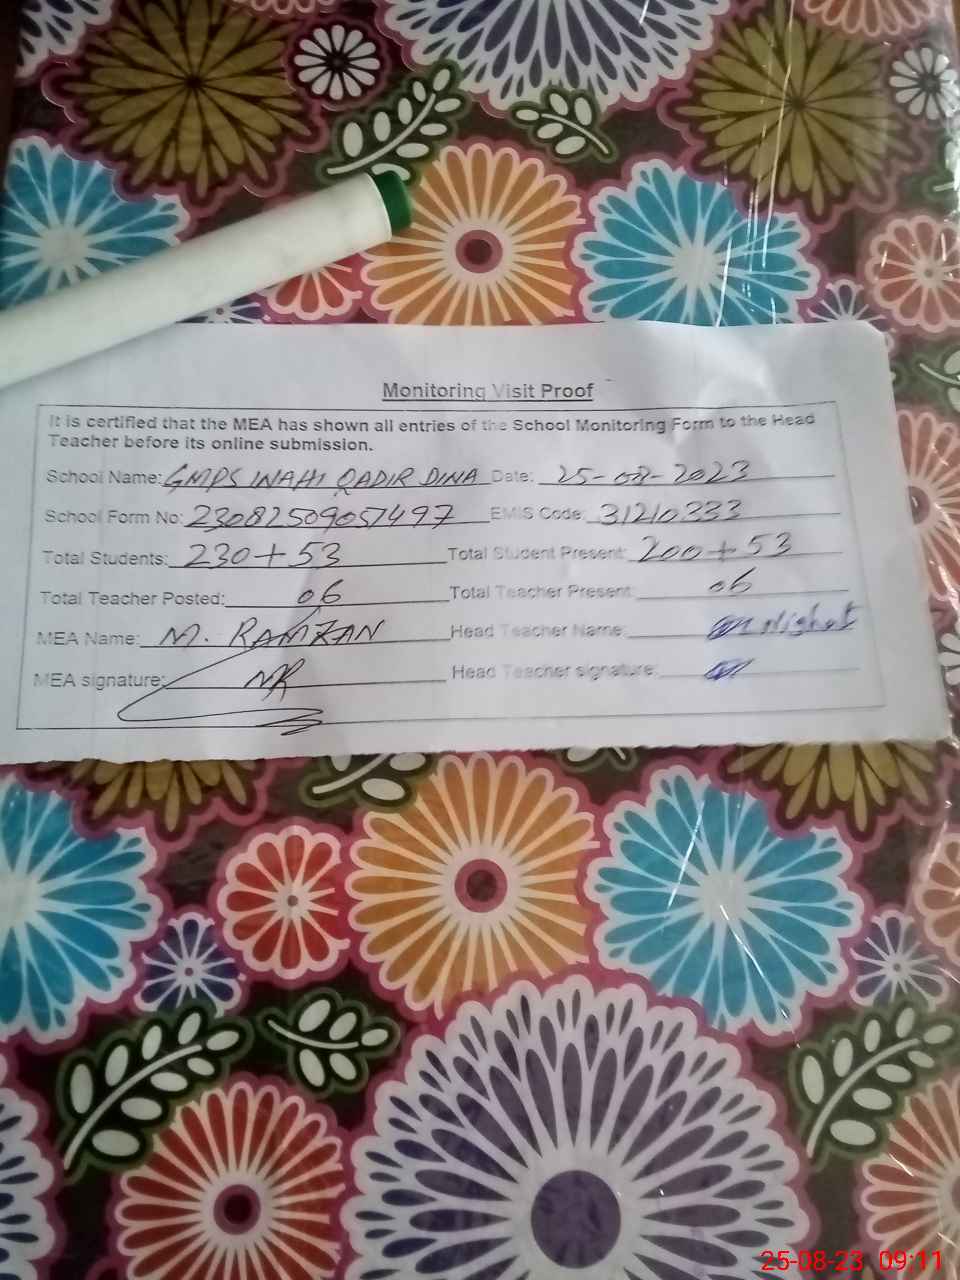 Monitoring Visit Proof
It is certified that the MEA has shown all entries of the School Monitoring Form to the Head
Teacher before its online submission.
School Name: GMPS WAHI QADIR DINA Date: 25-08-2023
School Form No: 23082509051497 EMIS Code: 31210333
Total Students: 230+53 Total Student Present: 200+53
Total Teacher Posted: 06 Total Teacher Present: 06
MEA Name: M. RAMZAN Head Teacher Name: Nighat
MEA signature: MR Head Teacher signature:
25-08-23 09:11